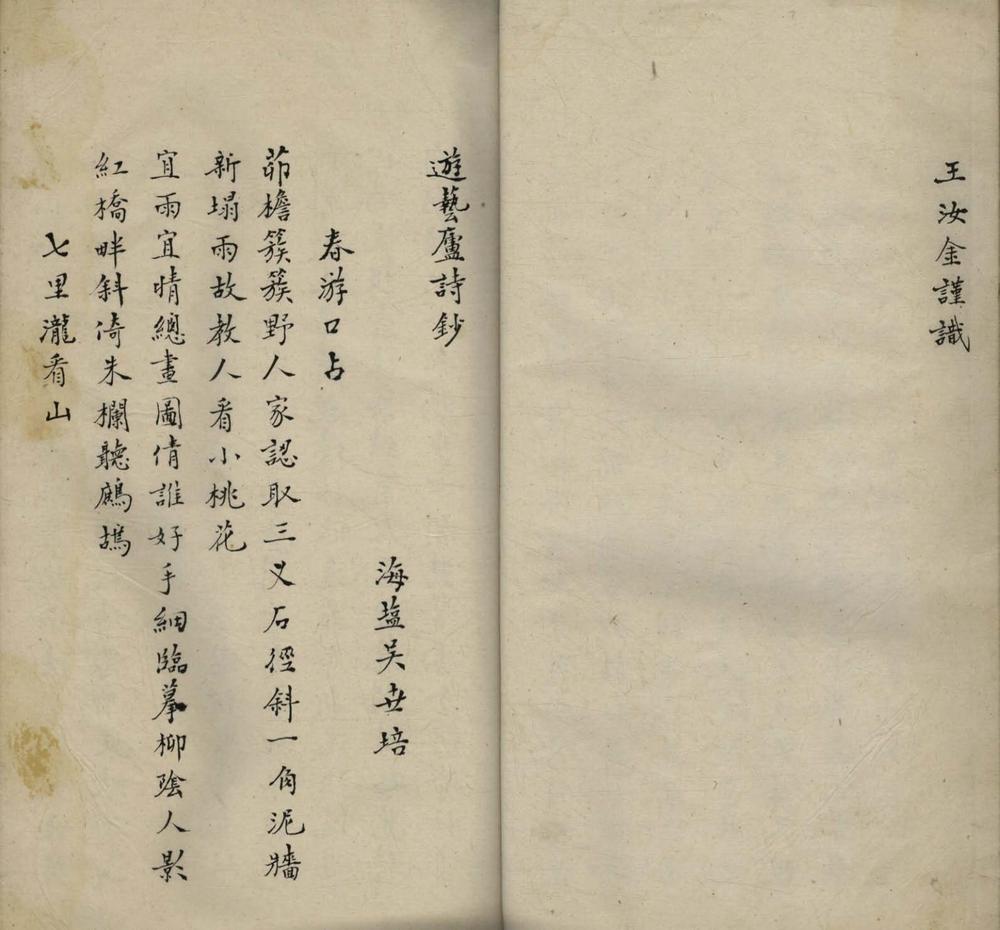 王汝金謹識
遊藝廬詩鈔
海塩吴世培
春游口占
茆檐簇簇野人家認取三义石徑斜一角泥牆
新塌雨故教人看小桃花
宜雨宜晴總畫圖倩誰好手細臨摹柳陰人影
紅橋畔斜倚朱欄聽鷓鴣
七里瀧看山